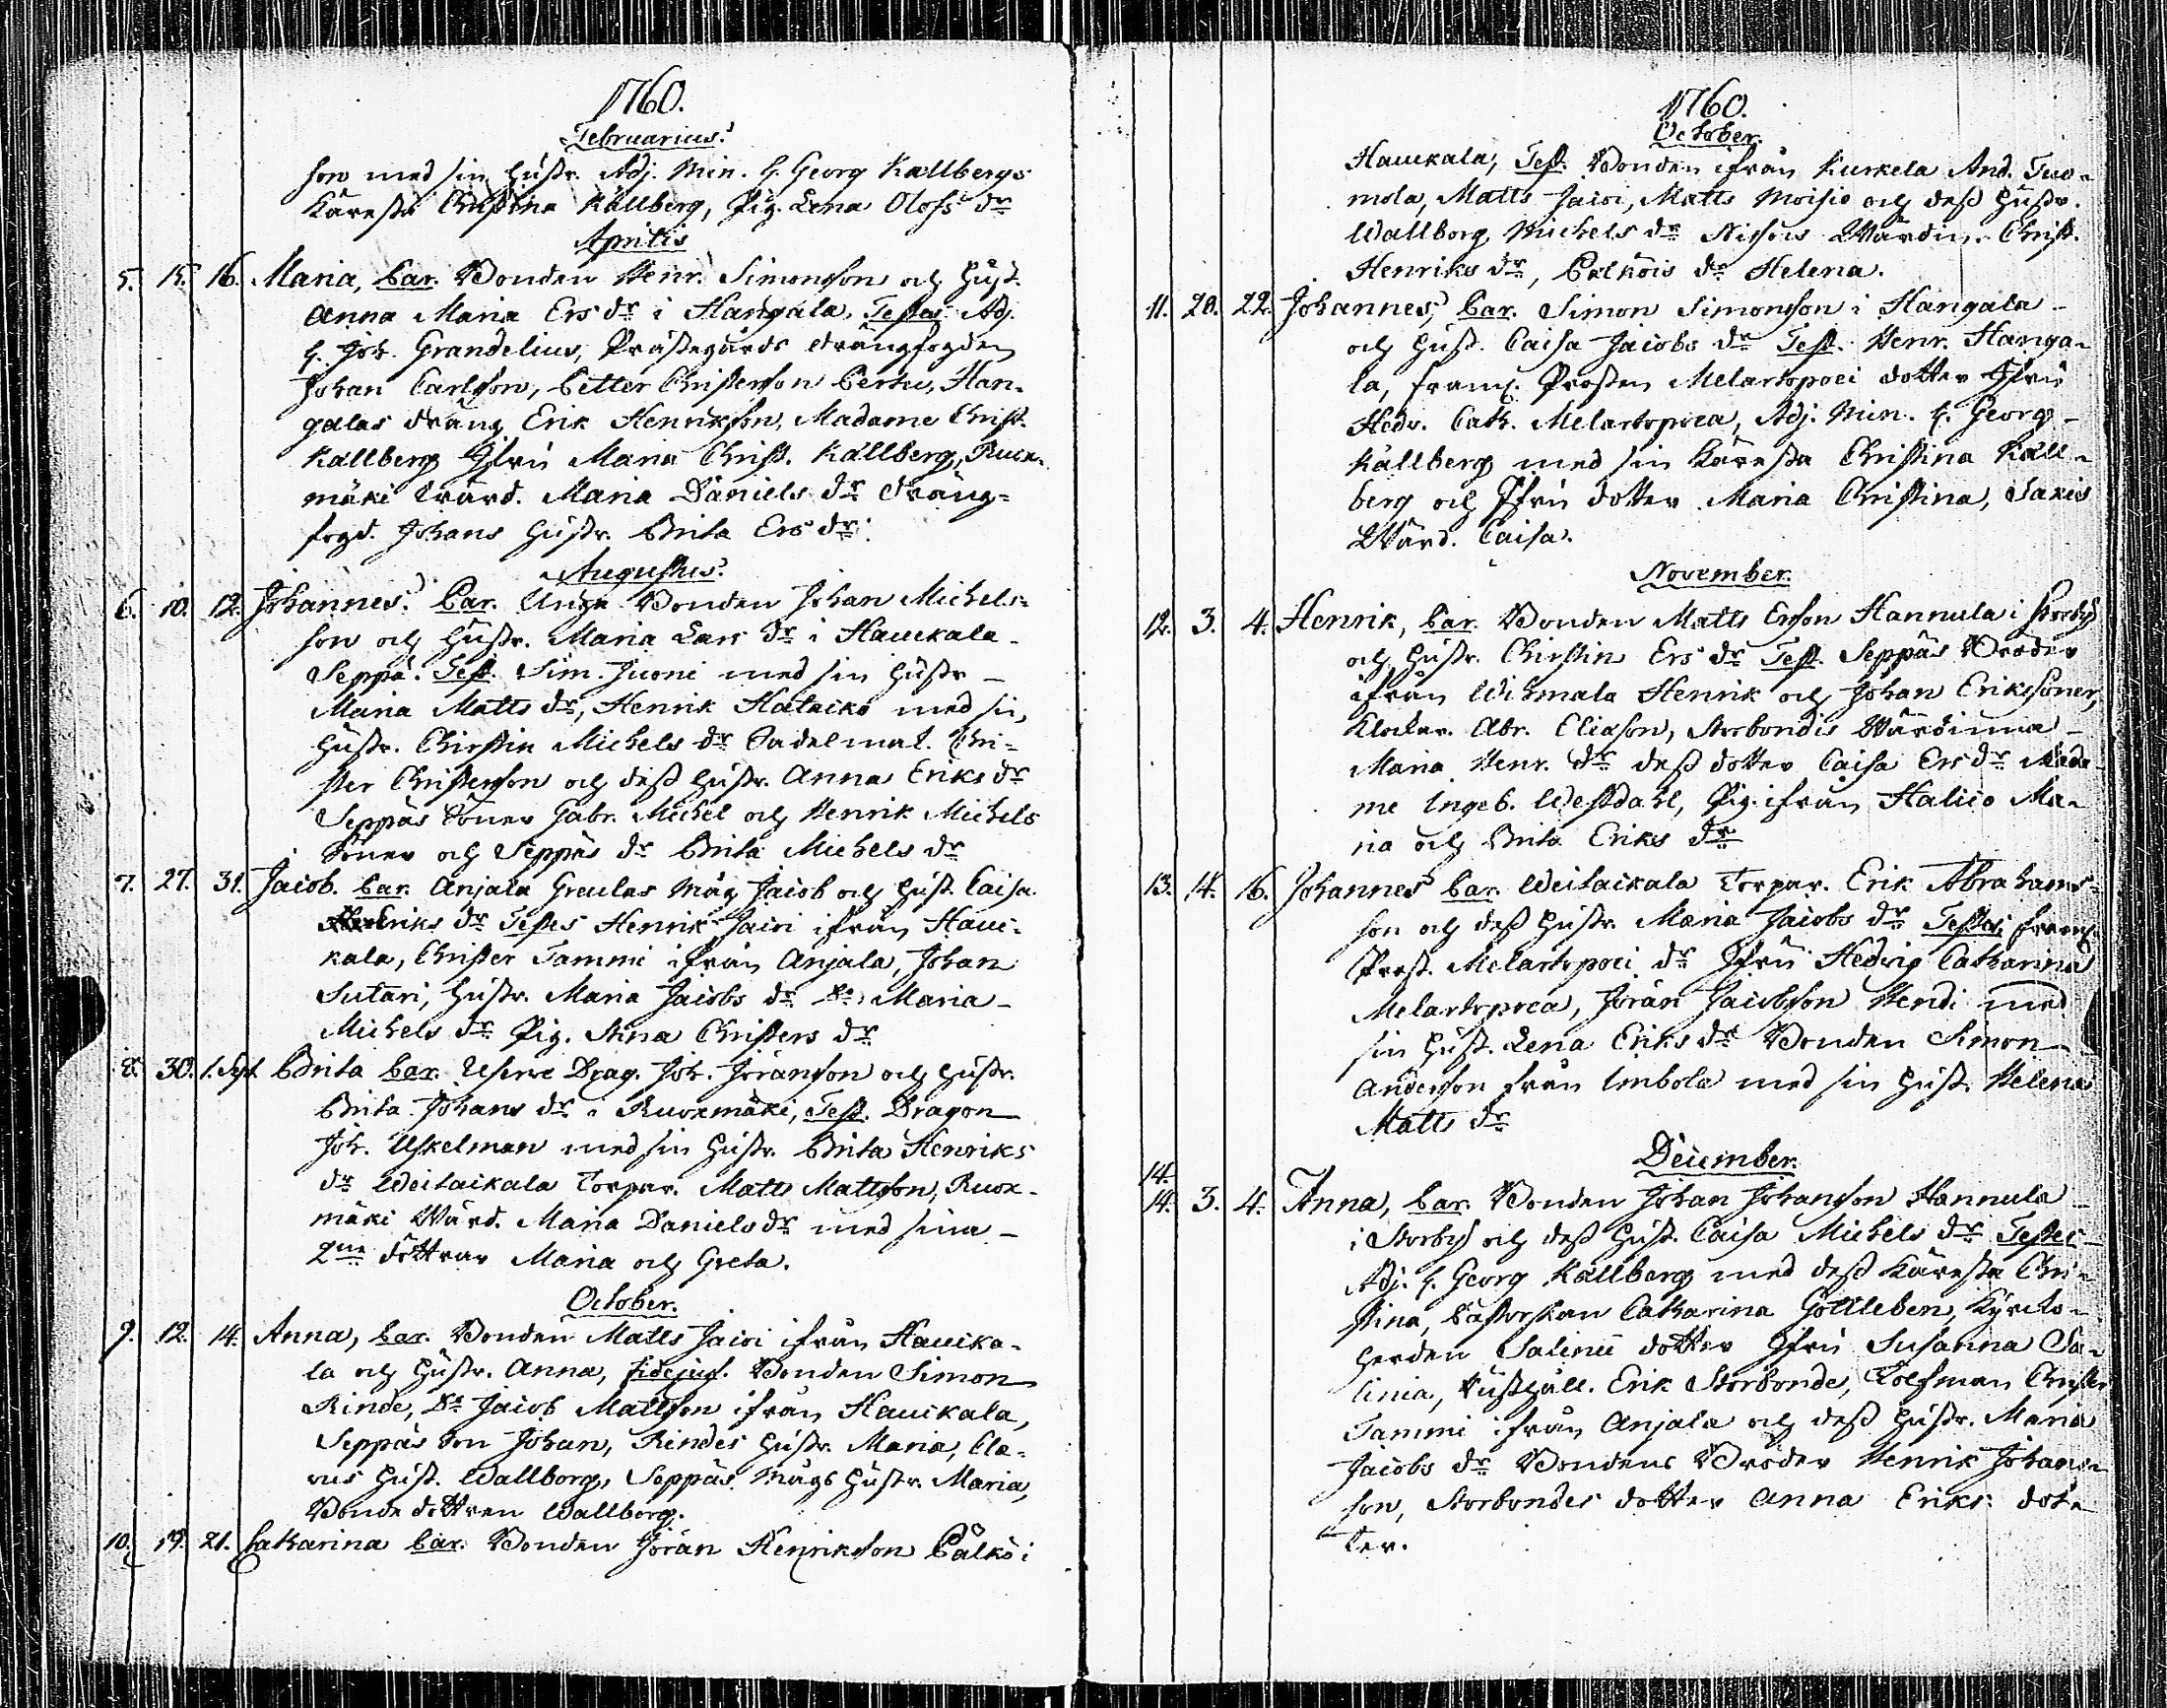 1760.
Februarius.
son med sin hustr. Adj. Min. H. Georg Kallbergs
Käresta Christina Källberg, Pig. Lena Olofs dr
Aprilis
5. 15. 16. Maria, Par. Bonden Henr. Simonsson och hust.
Anna Maria Ers dr i Hangala, Testes Adj.
H. Joh. Grandelius, Prästegårds drängfogden
Johan Carlsson, Petter Christersson Perttu, Han-
galas dräng Erik Henriksson, Madame Christ.
Källberg Jfru Maria Christ. Källberg, Ruck-
mäki Wärd. Maria Daniels dr dräng-
fogd. Johans hustr. Brita Ers dr.
Augustus.
6. 10. 12. Johannes. Par. Unga Bonden Johan Michels-
son och hustr. Maria Lars dr i Hauckala
Seppä. Test. Sim. Juoni med sin hustr
Maria Matts dr, Henrik Hatacko med sin
hustr. Chirstin Michels dr Sadelmak. Chri-
ster Christersson och dess hustr. Anna Eriks dr
Seppäs Söner Gabr. Michel och Henrik Michels
Söner och Seppäs dr Brita Michels dr
7. 27. 31. Jacob. Par. Anjala Greulas Måg Jacob och hust. Caisa
Eriks dr Testes Henrik Jaici ifrån Haui-
kala, Christer Tammi ifrån Anjala, Johan
Sutari, hustr. Maria Jacobs dr Do Maria
Michels dr Pig. Anna Christers dr
8. 30. 1. Sept. Brita Par. Reserve Drag. Joh. Jöransson och hustr.
Brita Johans dr i Ruokmäki, Test. Dragon
Joh. Uskelman med sin hustr. Brita Henriks
dr Weitaikala Torpar. Matts Mattsson, Ruok-
mäki Wärd. Maria Daniels dr med sina
2ne döttrar Maria och Greta.
October.
9. 12. 14. Anna, Par. Bonden Matts Jaici ifrån Hauika-
la och hustr. Anna, fidejuss. Bonden Simon
Rinde, Do Jacob Mattsson ifrån Hauikala,
Seppäs Son Johan, Rindes hustr. Maria, Cla-
rus hust. Wallborg, Seppäs Mågs hustr. Maria,
Bonde dottren Wallborg.
10. 19. 21. Catharina Par. Bonden Jöran Henriksson Pälkö i
1760.
October.
Hauckala, Test. Bonden ifrån Kurkela And. Tuo-
mola, Matts Jaici, Matts Moisio och dess hustr.
Wallborg Michels dr Wärdin. Christ.
Henriks dr, Pälköis dr Helena.
11. 20. 22. Johannes, Par. Simon Simonsson i Hangala
och hust. Caisa Jacobs dr Test. Henr. Hanga-
la, framl. Prosten Melartopoei dotter Jfru
Hedv. Cath. Melartopoea, Adj. Min. H. Georg
Källberg med sin Käresta Christina Käll-
berg och Jfru dotter Maria Christina, Saxis
Wärd. Caisa.
November.
12. 3. 4. Henrik, Par. Bonden Matts Ersson Hannula i Storby
och hustr. Chirstin Ers dr Test. Seppäs Bröder
ifrån Wichmala Henrik och Johan Erikssöner,
Klockar. Abr. Eliasson, Storbondis Wärdinna
Maria Henr. dr dess dotter Caisa Ers dr Mada-
me Ingeb. Westdahl, Pig. ifrån Halico Ma-
ria och Brita Eriks dr
13. 14. 16. Johannes Par. Weitaikala Torpar. Erik Abrahams-
son och dess hustr. Maria Jacobs dr Testes framl.
Prost. Melartopoei dr Jfru Hedvig Catharina
Melartopoea, Jöran Jacobsson Hendi med
sin hust. Lena Eriks dr Bonden Simon
Andersson från Imbola med sin hust. Helena
Matts dr
December.
14.
14. 3. 4. Anna, Par. Bonden Johan Johansson Hannula
i Storby och dess hust. Caisa Michels dr Testes
Adj. H. Georg Källberg med dess Käresta Chri-
stina, Pastorskan Catharina Gottleben, Kyrcko-
herden Salinii dotter Jfru Susanna Sa-
linia, Rusthåll. Erik Storbonde, Tolfman Christer
Tammi ifrån Anjala och dess hustr. Maria
Jacobs dr Bondens Broder Henrik Johans-
son, Storbondes dotter Anna Eriks dot-
ter.